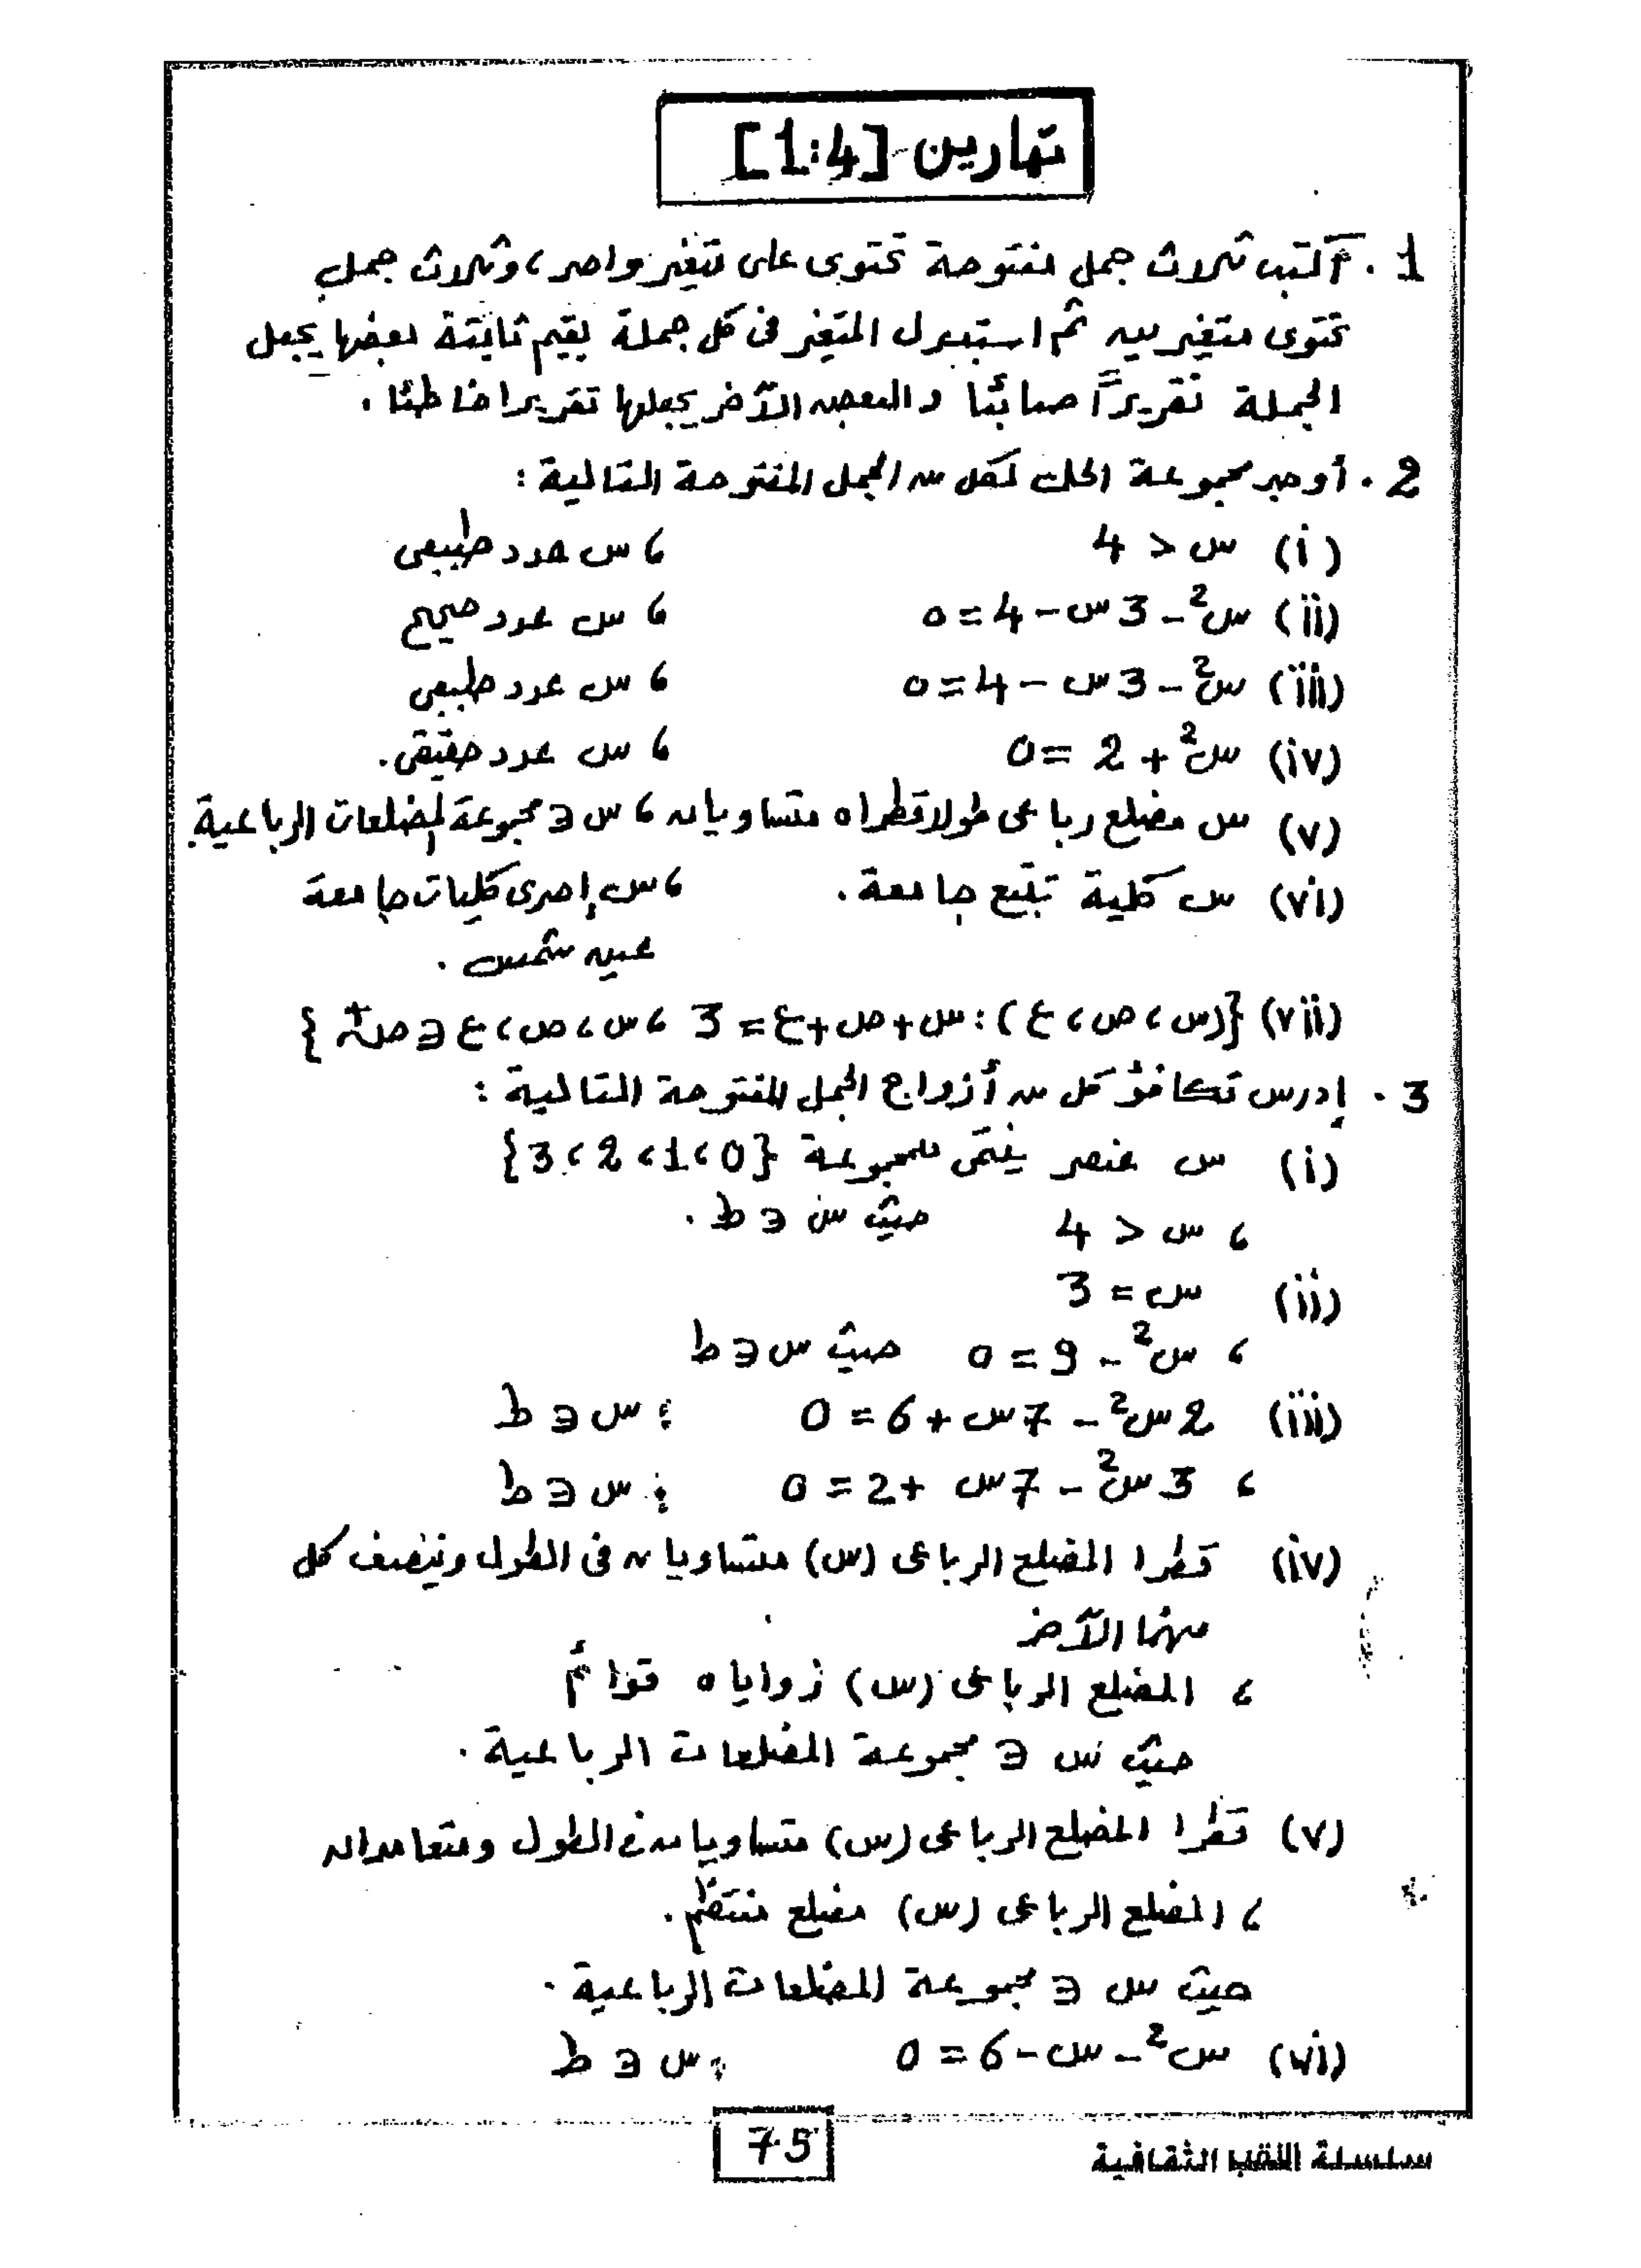 تمارين [1:4]
1. اكتب ثلاث جمل مفتوحة تحتوى على متغير واحد، وثلاث جمل
تحتوى متغيرين ثم استبدل المتغير فى كل جملة بقيم ثابتة بعضها يجعل
الجملة تقريراً صائبًا والبعض الآخر يجعلها تقريرا خاطئا.
2. أوجد مجموعة الحل لكل من الجمل المفتوحة التالية:
(i) س < 4 ، س عدد طبيعى
(ii) س² - 3س - 4 = 0 ، س عدد صحيح
(iii) س² - 3س - 4 = 0 ، س عدد طبيعى
(iv) س² + 2 = 0 ، س عدد حقيقى.
(v) س مضلع رباعى طولا قطراه متساويان ، س ∈ مجموعة المضلعات الرباعية.
(vi) س كلية تتبع جامعة. ، س إحدى كليات جامعة
عين شمس.
(vii) {(س، ص، ع): س + ص + ع = 3 ، س، ص، ع ∈ صہ⁺}
3. إدرس تكافؤ كل من أزواج الجمل المفتوحة التالية:
(i) س عنصر ينتمى للمجموعة {0، 1، 2، 3}
، س < 4 حيث س ∈ ط.
(ii) س = 3
، س² - 9 = 0 حيث س ∈ ط
(iii) 2س² - 7س + 6 = 0 ؛ س ∈ ط
، 3س² - 7س + 2 = 0 ؛ س ∈ ط
(iv) قطرا المضلع الرباعى (س) متساويان فى الطول وينصف كل
منهما الآخر
، المضلع الرباعى (س) زواياه قوائم
حيث س ∈ مجموعة المضلعات الرباعية.
(v) قطرا المضلع الرباعى (س) متساويان فى الطول ومتعامدان
، المضلع الرباعى (س) مضلع منتظم.
حيث س ∈ مجموعة المضلعات الرباعية.
(vi) س² - س - 6 = 0 ؛ س ∈ ط
75
سلسلة الثقافية